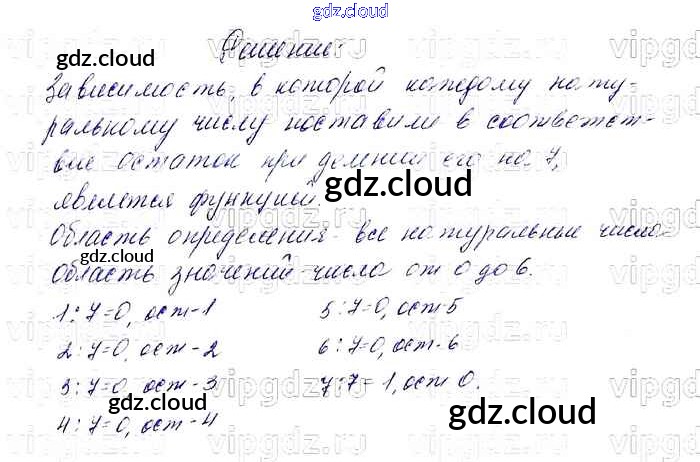 gdz.cloud
Решение:
Зависимость, в которой каждому нату-
ральному числу поставили в соответст-
вие остаток при делении его на 7,
является функцией.
Область определения - все натуральные числа
область значений - числа от 0 до 6.
1:7=0, ост-1
2:7=0, ост-2
3:7=0, ост-3
4:7=0, ост-4
5:7=0, ост-5
6:7=0, ост-6
7:7=1, ост 0.
gdz.cloud
gdz.cloud
gdz.cloud
gdz.cloud
gdz.cloud
gdz.cloud
gdz.cloud
vipgdz.ru
vipgdz.ru
vipgdz.ru